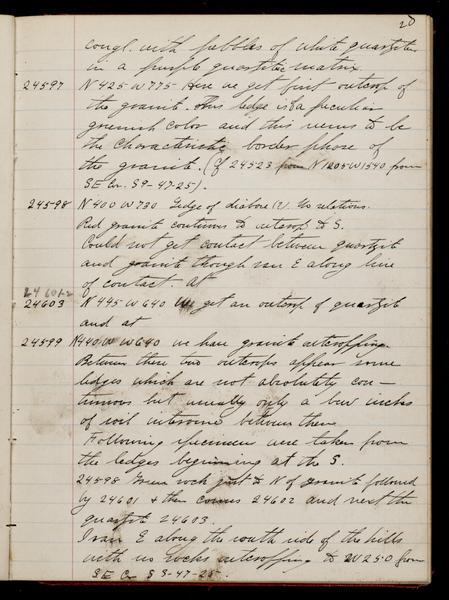 20
congl. with pebbles of white quartzite
in a purple quartzitic matrix.
24597 N 425 W 775 Here we get first outcrop of
the granite. This ledge is of a peculiar
greenish color and this seems to be
the characteristic border phase of
the granite. (Cf 24523 from N 1205 W 1540 from
SE Cor. S 9-47-25).
24598 N 400 W 730 Ledge of diabase (?). No relations.
Red granite continues to outcrop to S.
Could not get contact between quartzite
and granite though ran E along line
of contact. At
24601-2
24603 N 495 W 640 We get an outcrop of quartzite
and at
24599 N 440 W 640 we have granite outcropping.
Between these two outcrops appear some
ledges which are not absolutely con-
tinuous but usually only a few inches
of soil intervene between them
Following specimens were taken from
the ledges beginning at the S.
24598 Green rock just to N of granite followed
by 24601 & then comes 24602 and next the
quartzite 24603.
I ran E along the south side of the hills
with no rocks outcropping to W 250 from
SE Cor S 9-47-25.